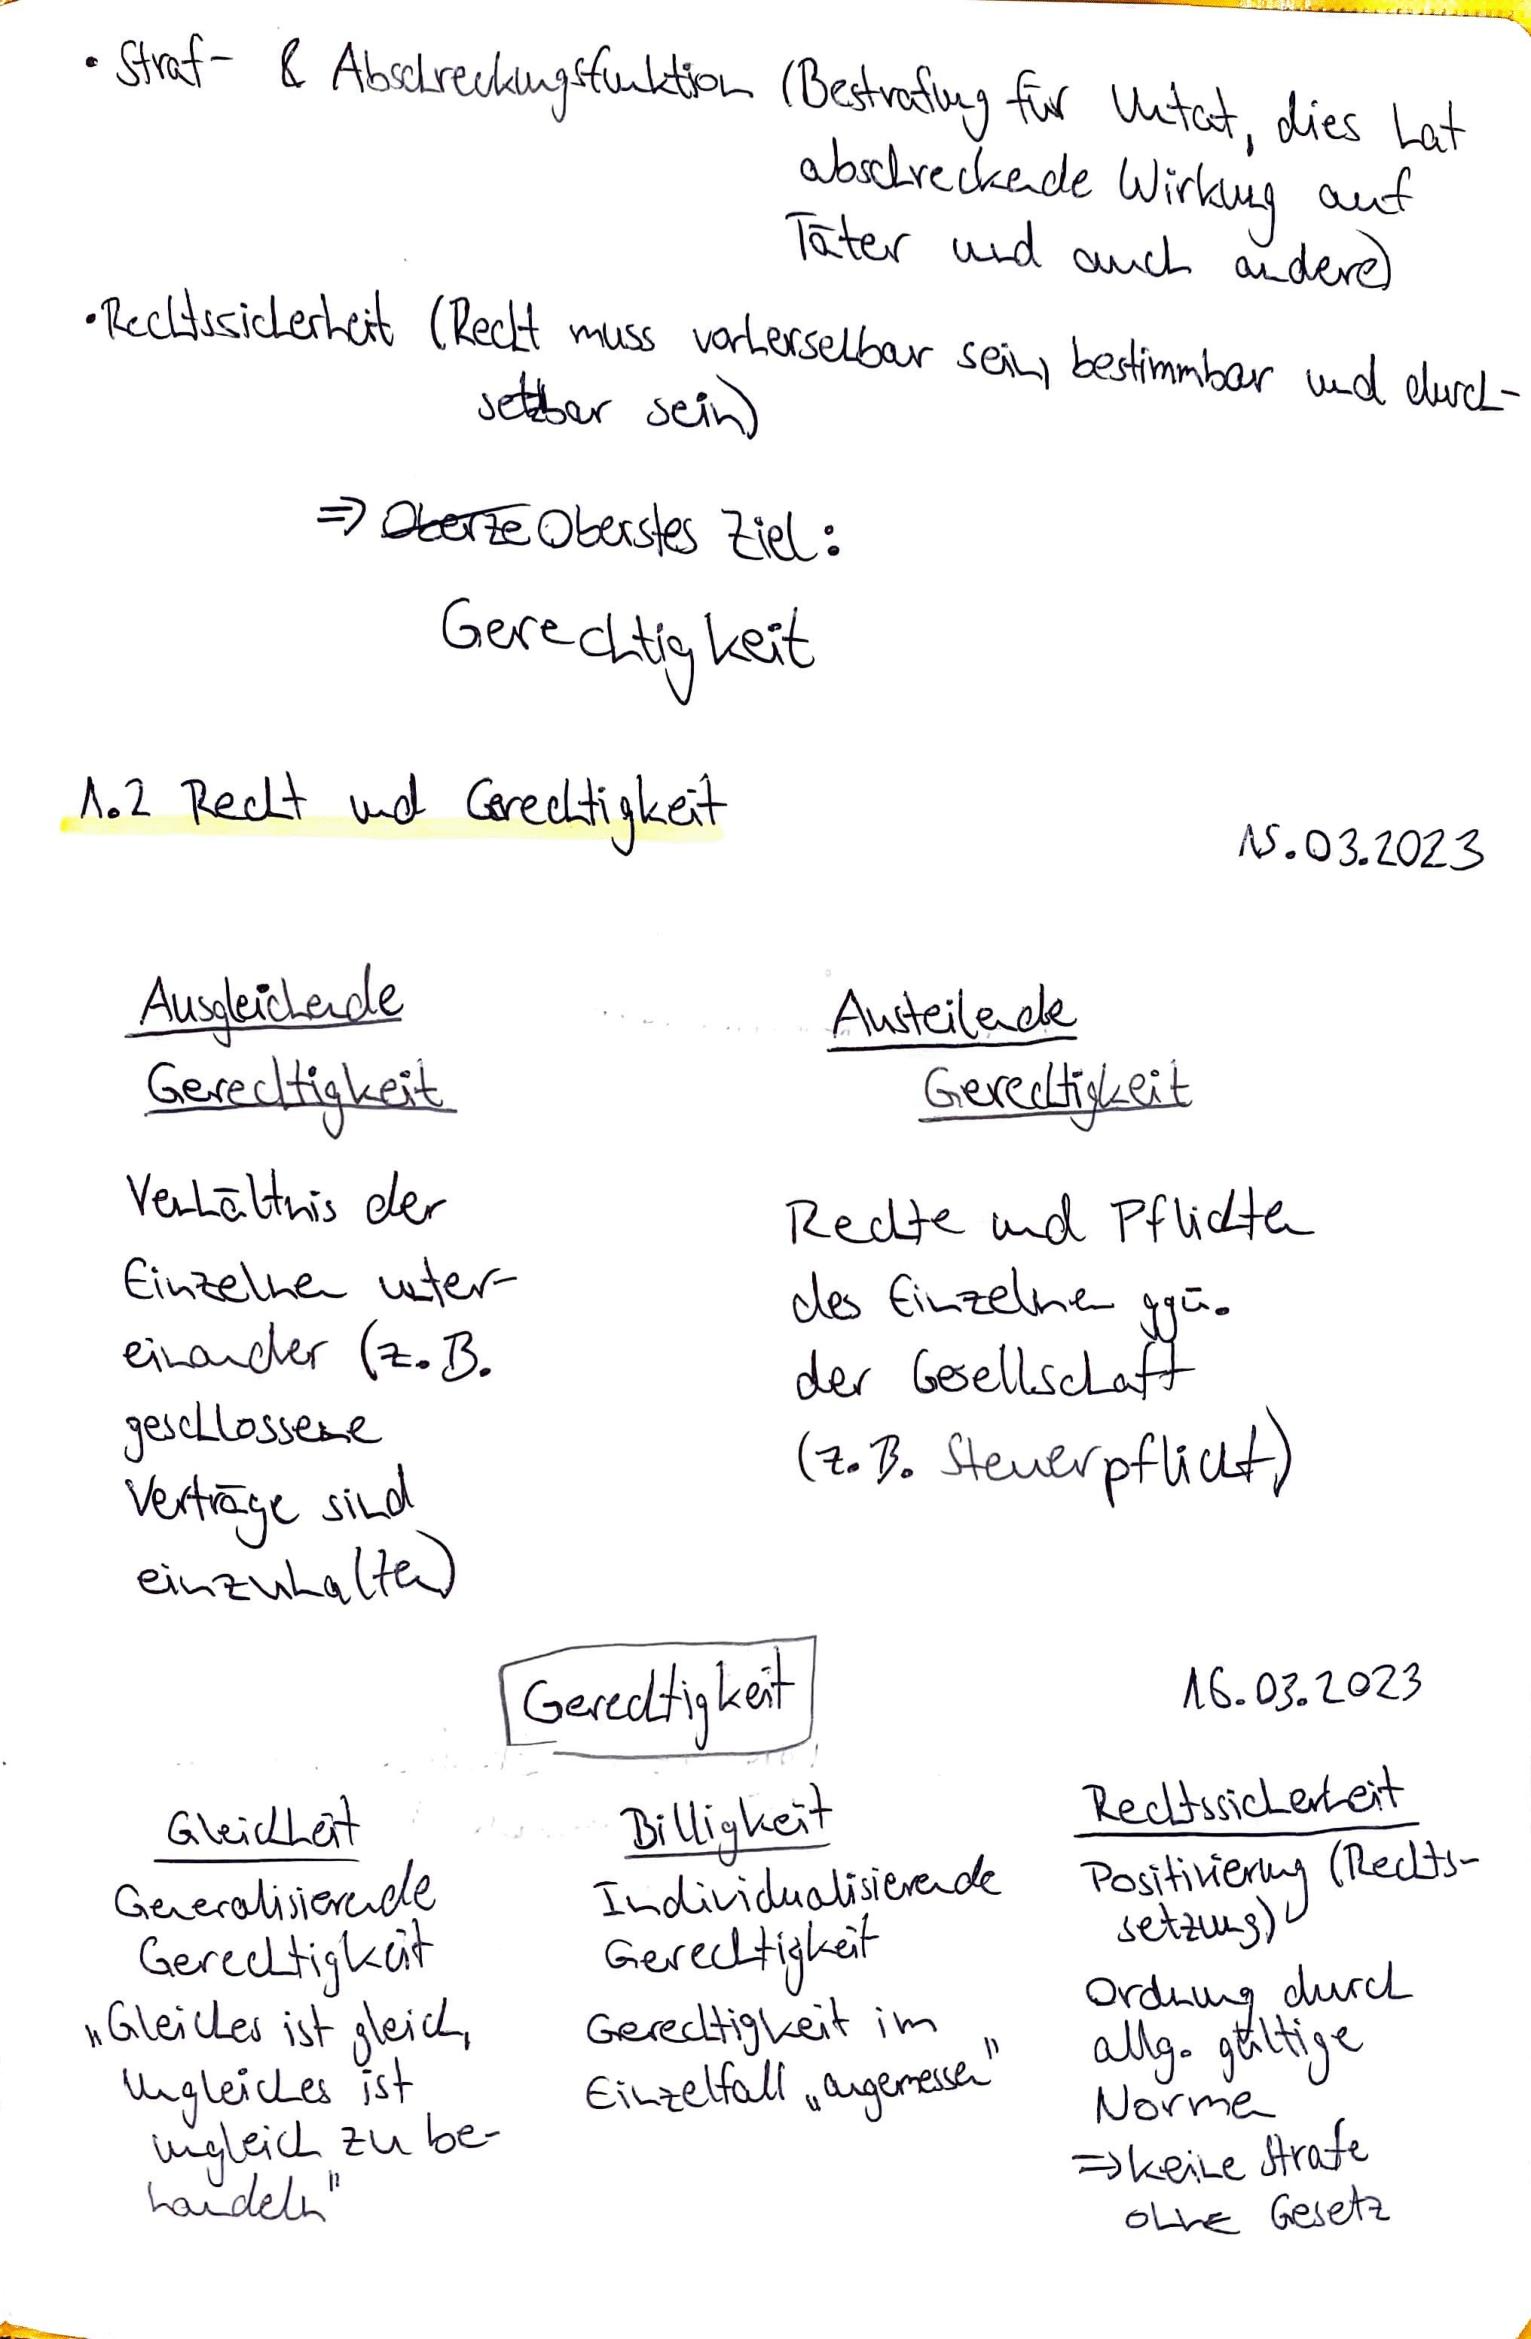 • Straf- & Abschreckungsfunktion (Bestrafung für Untat, dies hat
abschreckende Wirkung auf
Täter und auch andere)
• Rechtssicherheit (Recht muss vorhersehbar sein, bestimmbar und durch-
setzbar sein)
=> Oberze Oberstes Ziel:
Gerechtigkeit
1.2 Recht und Gerechtigkeit
15.03.2023
Ausgleichende
Gerechtigkeit
Verhältnis der
Einzelnen unter-
einander (z.B.
geschlossene
Verträge sind
einzuhalten)
Austeilende
Gerechtigkeit
Rechte und Pflichten
des Einzelnen ggü.
der Gesellschaft
(z.B. Steuerpflicht)
Gerechtigkeit
16.03.2023
Gleichheit
Generalisierende
Gerechtigkeit
„Gleiches ist gleich,
Ungleiches ist
ungleich zu be-
handeln"
Billigkeit
Individualisierende
Gerechtigkeit
Gerechtigkeit im
Einzelfall „angemessen"
Rechtssicherheit
Positivierung (Rechts-
setzung)
Ordnung durch
allg. gültige
Normen
=> keine Strafe
ohne Gesetz